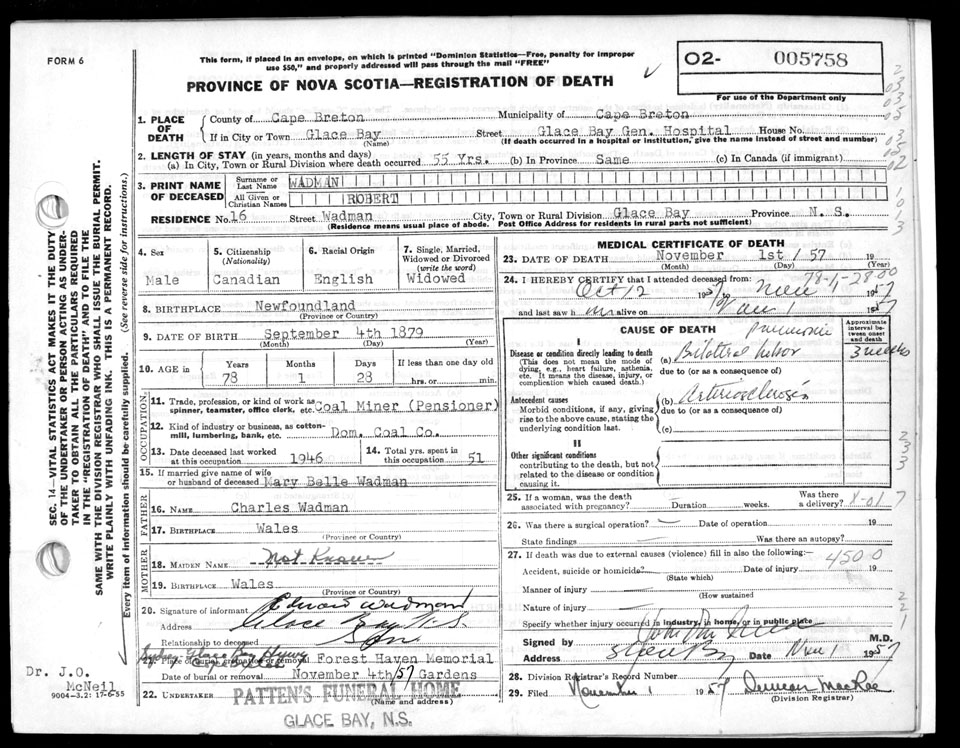 FORM 6
This form, if placed in an envelope, on which is printed "Dominion Statistics—Free, penalty for improper
use $50," and properly addressed will pass through the mail "FREE"
PROVINCE OF NOVA SCOTIA—REGISTRATION OF DEATH
O2- 005758
For use of the Department only
1. PLACE OF DEATH
County of Cape Breton Municipality of Cape Breton
If in City or Town Glace Bay Street Glace Bay Gen. Hospital House No.
(Name) (If death occurred in a hospital or institution, give the name instead of street and number)
2. LENGTH OF STAY (in years, months and days)
(a) In City, Town or Rural Division where death occurred 55 Yrs. (b) In Province Same (c) In Canada (if immigrant)
3. PRINT NAME OF DECEASED
Surname or Last Name WADMAN
All Given or Christian Names ROBERT
RESIDENCE No. 16 Street Wadman City, Town or Rural Division Glace Bay Province N. S.
(Residence means usual place of abode. Post Office Address for residents in rural parts not sufficient)
4. Sex Male
5. Citizenship (Nationality) Canadian
6. Racial Origin English
7. Single, Married, Widowed or Divorced (write the word) Widowed
8. BIRTHPLACE Newfoundland
(Province or Country)
9. DATE OF BIRTH September 4th 1879
(Month) (Day) (Year)
10. AGE in Years Months Days If less than one day old
78 1 28 hrs. or min.
OCCUPATION
11. Trade, profession, or kind of work as
spinner, teamster, office clerk, etc. Coal Miner (Pensioner)
12. Kind of industry or business, as cotton-
mill, lumbering, bank, etc. Dom. Coal Co.
13. Date deceased last worked
at this occupation 1946
14. Total yrs. spent in
this occupation 51
15. If married give name of wife
or husband of deceased Mary Belle Wadman
FATHER
16. NAME Charles Wadman
17. BIRTHPLACE Wales
(Province or Country)
MOTHER
18. MAIDEN NAME Not Known
19. BIRTHPLACE Wales
(Province or Country)
20. Signature of informant Edward Wadman
Address Glace Bay N.S.
Relationship to deceased Son
21. Place of burial, cremation or removal Forest Haven Memorial
Sydney-Glace Bay Highway
Date of burial or removal November 4th/57 Gardens
22. UNDERTAKER PATTEN'S FUNERAL HOME
(Name and address)
GLACE BAY, N.S.
MEDICAL CERTIFICATE OF DEATH
23. DATE OF DEATH November 1st / 57 19
(Month) (Day) (Year)
24. I HEREBY CERTIFY that I attended deceased from:
78-1-28-00
Oct 12 1957 to Nov 1 1957
and last saw him alive on Nov 1 1957
CAUSE OF DEATH
Approximate interval between onset and death
I
Disease or condition directly leading to death
(This does not mean the mode of
dying, e.g., heart failure, asthenia,
etc. It means the disease, injury, or
complication which caused death.)
(a) Bilateral lobar pneumonia 3 weeks
due to (or as a consequence of)
Antecedent causes
Morbid conditions, if any, giving
rise to the above cause, stating the
underlying condition last.
(b) Arteriosclerosis
due to (or as a consequence of)
(c)
II
Other significant conditions
contributing to the death, but not
related to the disease or condition
causing it.
25. If a woman, was the death
associated with pregnancy? Duration weeks. Was there
a delivery?
26. Was there a surgical operation? Date of operation 19
State findings Was there an autopsy?
27. If death was due to external causes (violence) fill in also the following:
450 0
Accident, suicide or homicide? Date of injury 19
(State which)
Manner of injury
(How sustained
Nature of injury
Specify whether injury occurred in industry, in home, or in public place
Signed by M.D.
Address Glace Bay Date Nov 1 1957
28. Division Registrar's Record Number
29. Filed November 1 1957 Duncan MacRae
(Division Registrar)
SEC. 14—VITAL STATISTICS ACT MAKES IT THE DUTY
OF THE UNDERTAKER OR PERSON ACTING AS UNDER-
TAKER TO OBTAIN ALL THE PARTICULARS REQUIRED
IN THE "REGISTRATION OF DEATH" AND TO FILE THE
SAME WITH THE DIVISION REGISTRAR WHO SHALL ISSUE THE BURIAL PERMIT.
WRITE PLAINLY WITH UNFADING INK. THIS IS A PERMANENT RECORD.
Every item of information should be carefully supplied. (See reverse side for instructions.)
Dr. J.O.
McNeil
9004-3.2: 17-6-55